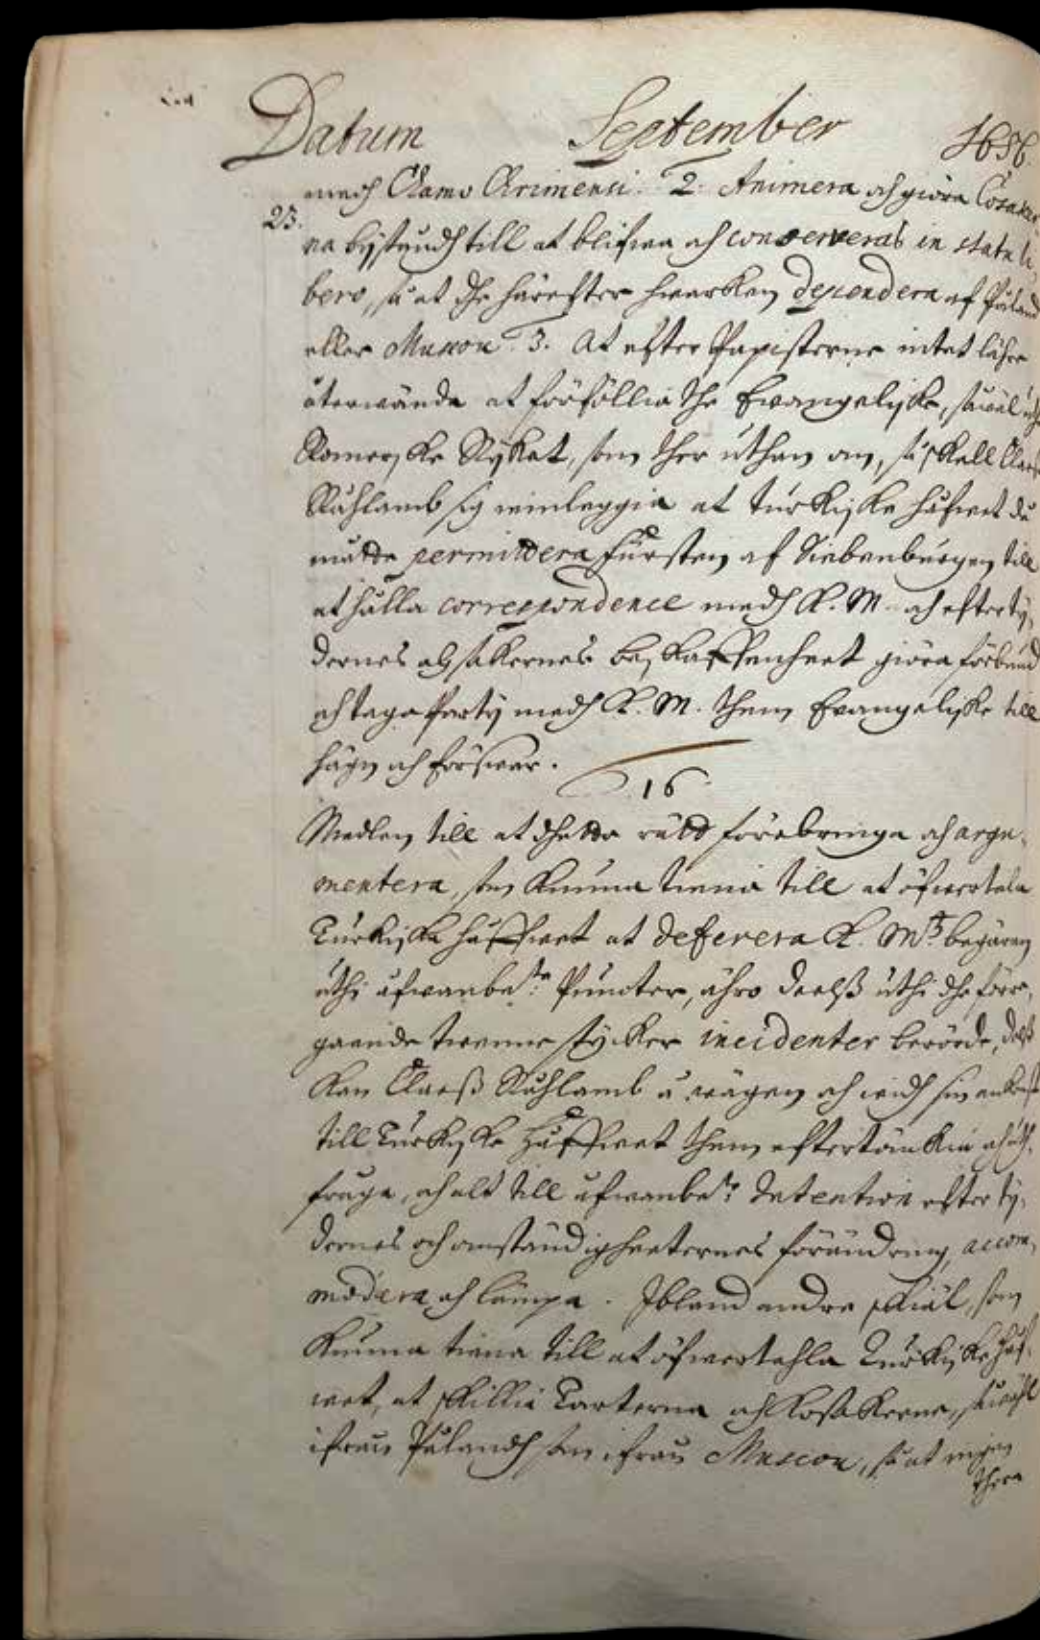 Datum September 1656
medh Chamo Crimensi. 2. Animera och giöra Cosaker
23.
na bijståndh till at blifwa och conserveras in statu li,
bero, så at dhe härefter hwarken dependera af Påland
eller Muscou. 3. At efter Papisterne intet lähre
återwända at förföllia the Evangelijske, såwäl uthj
Romerske Rijket, som ther uthan om, så skall Claes
Rålamb sig winleggia at Turkijske håfwet då
måtte permittera Fursten af Siebenbürgen till
at hålla correspondence medh K. M. och efter tij,
dernes och sakernes beskaffenheet giöra förbund
och taga Partij medh K. M. them Evangelijske till
hägn och försvar.
16
Medlen till at dhetta rätt förebringa och argu,
mentera, som kunna tiena till at öfwertala
Turkijska håffwet at deferera K. Mtz begären
uthi ofwanbete Puncter, ähro deelß uthi dhe förre,
gaende twenne stycker incidenter berörde, delß
kan Claeß Rålamb å wägen och widh sin ankomst
till Turkijske Håffwet them eftertänkia och uth,
fråga, och alt till ofwanbete Intention efter tij,
dernes och omständigheeternes förändring, accom,
modera och lämpa. Ibland andra skiäl, som
kunna tiena till at öfwertahla Turkijske Håf,
wet, at skillia Tarterna och Kosakerne, såwähl
ifrån Pålandh som ifrån Muscou, så at ingen
thera